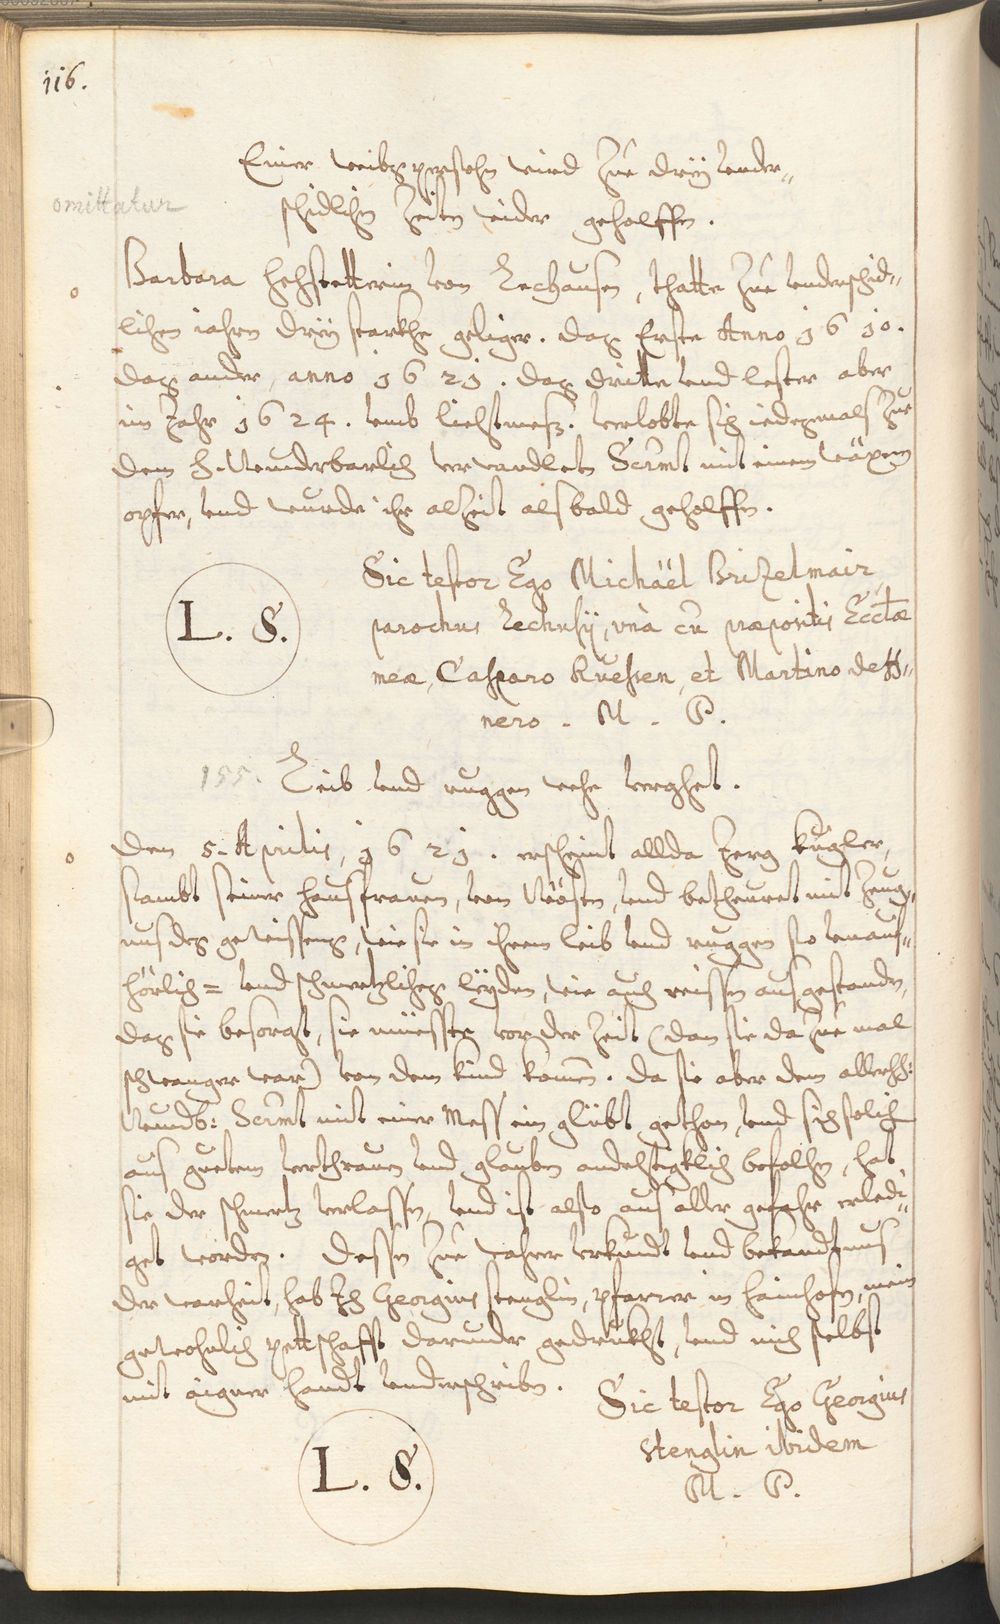 116.
Einer weibspersohn wird zue dreÿ under„
omittatur
schidlichen Zeiten wider geholffen.
Barbara Hechstetterin von Lechausen, thatte zue underschid„
lichen iahren dreÿ starkhe geliger. das Erste Anno 1610.
das ander, anno 1621. das dritte und lester aber
im Jahr 1624. umb liechtmess. verlobte sich iedesmals zue
dem H. Wunderbarlich verwandleten Scrmt mit einem wäxem
opfer, und wurde ihr alzeit alsbald geholffen.
Sic testor Ego Michäel Brizelmair
parochus Lechusij, unà cũ præpositis Ecclæ
meæ, Casparo Ruessen, et Martino dett„
nero. M. P.
L. S.
155. Leib und ruggen wehe vergehet.
Den 5. Aprilis, 1621. erscheint allda Jerg Kugler,
sambt seiner hausfrauen, von Vösten, und betheuret mit zeug„
nus des gewissens, wie sie in ihrem leib und ruggen so unauf„
hörlich= und schmertzliches leÿden, wie auch reissen ausgestanden,
das sie besorgt, sie müesste vor der Zeit (dan sie da zue mal
schwanger war) von dem kind komen. da sie aber dem allerhh:
Wundb: Scrmt mit einer Mess ein glübt gethon, und sich solich
aus guetem verthrauen und glauben andechtigklich befolhen, hat
sie der schmertz verlassen, und ist also aus aller gefahr erledi„
get worden. Dessen zue wahrer urkundt und bekandtnus
der warheit, hab Ich Georgius stenglin, pfarrer in hainhofen, mein
gewohnlich pettschafft darunder gedrukht, und mich selbst
mit aigner handt underschriben.
Sic testor Ego Georgius
stenglin ibidem
M. P.
L. S.